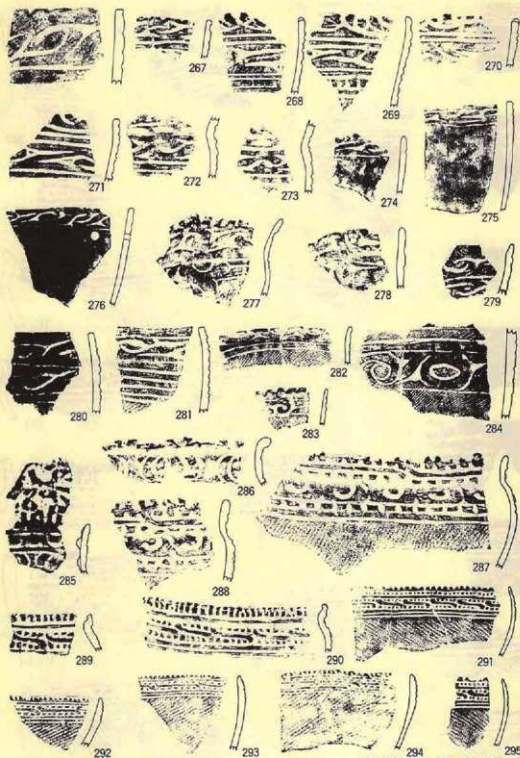 267 268 269 270
271 272 273 274 275
276 277 278 279
280 281 282 283 284
285 286 287 288
289 290 291
292 293 294 295